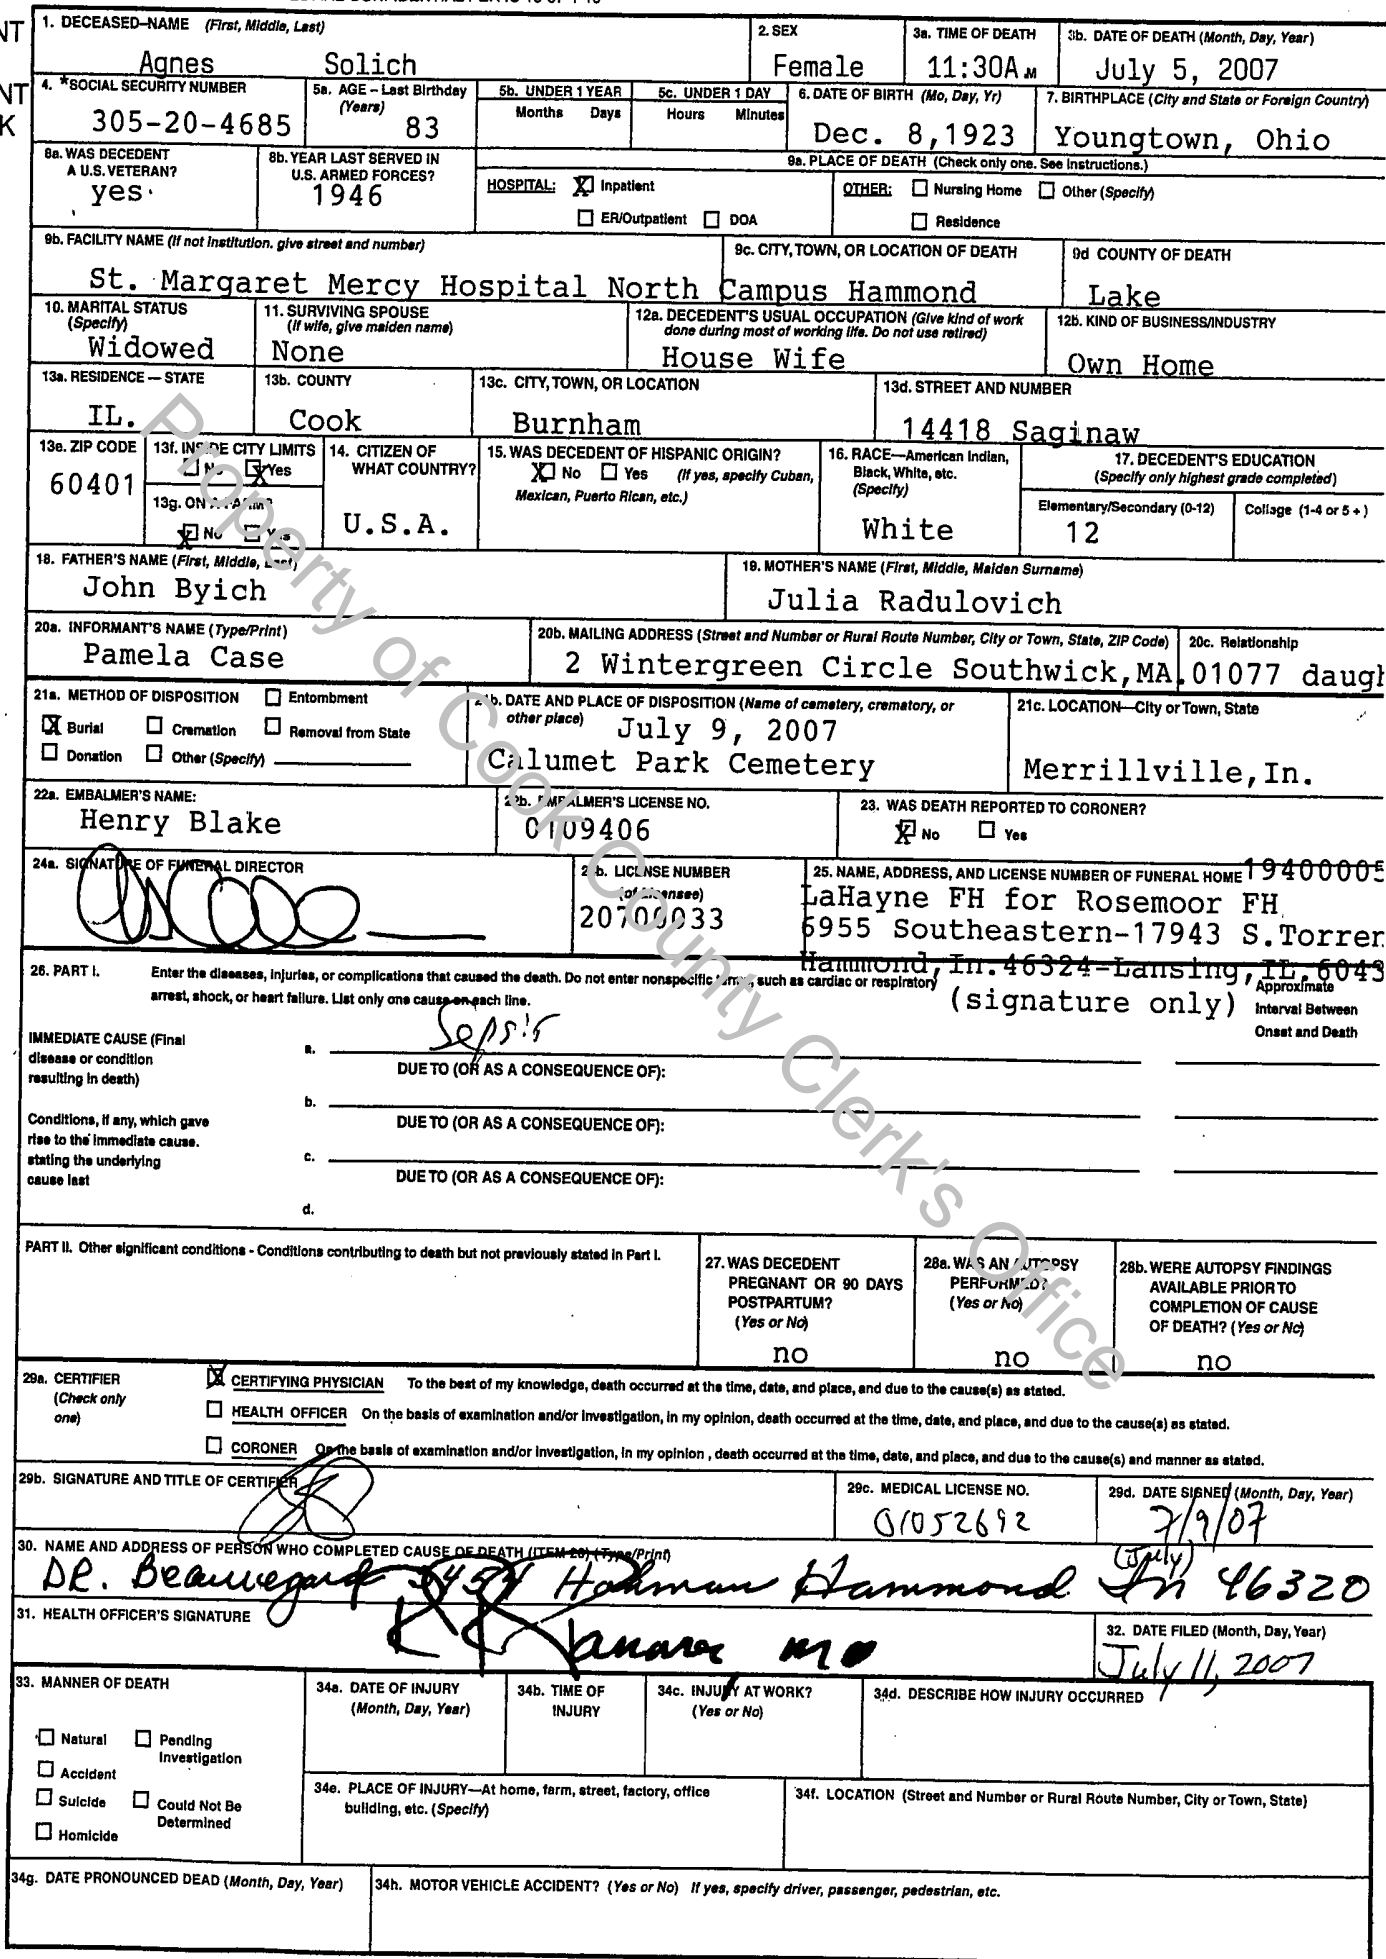 NT
NT
K
1. DECEASED–NAME (First, Middle, Last)
Agnes Solich
2. SEX
Female
3a. TIME OF DEATH
11:30A M
3b. DATE OF DEATH (Month, Day, Year)
July 5, 2007
4. *SOCIAL SECURITY NUMBER
305-20-4685
5a. AGE – Last Birthday
(Years)
83
5b. UNDER 1 YEAR
Months Days
5c. UNDER 1 DAY
Hours Minutes
6. DATE OF BIRTH (Mo, Day, Yr)
Dec. 8,1923
7. BIRTHPLACE (City and State or Foreign Country)
Youngtown, Ohio
8a. WAS DECEDENT
A U.S. VETERAN?
yes
8b. YEAR LAST SERVED IN
U.S. ARMED FORCES?
1946
9a. PLACE OF DEATH (Check only one. See Instructions.)
HOSPITAL: X Inpatient
ER/Outpatient DOA
OTHER: Nursing Home Other (Specify)
Residence
9b. FACILITY NAME (If not institution, give street and number)
9c. CITY, TOWN, OR LOCATION OF DEATH
9d COUNTY OF DEATH
St. Margaret Mercy Hospital North Campus Hammond
Lake
10. MARITAL STATUS
(Specify)
Widowed
11. SURVIVING SPOUSE
(If wife, give maiden name)
None
12a. DECEDENT'S USUAL OCCUPATION (Give kind of work
done during most of working life. Do not use retired)
House Wife
12b. KIND OF BUSINESS/INDUSTRY
Own Home
13a. RESIDENCE — STATE
IL.
13b. COUNTY
Cook
13c. CITY, TOWN, OR LOCATION
Burnham
13d. STREET AND NUMBER
14418 Saginaw
13e. ZIP CODE
60401
13f. INSIDE CITY LIMITS
No X Yes
13g. ON A FARM?
X No Yes
14. CITIZEN OF
WHAT COUNTRY?
U.S.A.
15. WAS DECEDENT OF HISPANIC ORIGIN?
X No Yes (If yes, specify Cuban,
Mexican, Puerto Rican, etc.)
16. RACE—American Indian,
Black, White, etc.
(Specify)
White
17. DECEDENT'S EDUCATION
(Specify only highest grade completed)
Elementary/Secondary (0-12) College (1-4 or 5 + )
12
18. FATHER'S NAME (First, Middle, Last)
John Byich
19. MOTHER'S NAME (First, Middle, Maiden Surname)
Julia Radulovich
20a. INFORMANT'S NAME (Type/Print)
Pamela Case
20b. MAILING ADDRESS (Street and Number or Rural Route Number, City or Town, State, ZIP Code)
20c. Relationship
2 Wintergreen Circle Southwick,MA.01077 daugh
21a. METHOD OF DISPOSITION Entombment
X Burial Cremation Removal from State
Donation Other (Specify)
21b. DATE AND PLACE OF DISPOSITION (Name of cemetery, crematory, or
other place) July 9, 2007
Calumet Park Cemetery
21c. LOCATION—City or Town, State
Merrillville,In.
22a. EMBALMER'S NAME:
Henry Blake
22b. EMBALMER'S LICENSE NO.
0109406
23. WAS DEATH REPORTED TO CORONER?
X No Yes
24a. SIGNATURE OF FUNERAL DIRECTOR
24b. LICENSE NUMBER
(of Licensee)
20700033
25. NAME, ADDRESS, AND LICENSE NUMBER OF FUNERAL HOME 19400005
LaHayne FH for Rosemoor FH
6955 Southeastern-17943 S.Torren
Hammond,In.46324-Lansing,IL.6043
(signature only)
26. PART I. Enter the diseases, injuries, or complications that caused the death. Do not enter nonspecific terms, such as cardiac or respiratory
arrest, shock, or heart failure. List only one cause on each line.
Approximate
Interval Between
Onset and Death
IMMEDIATE CAUSE (Final
disease or condition
resulting in death)
a. Sepsis
DUE TO (OR AS A CONSEQUENCE OF):
b.
Conditions, if any, which gave
rise to the immediate cause.
stating the underlying
cause last
DUE TO (OR AS A CONSEQUENCE OF):
c.
DUE TO (OR AS A CONSEQUENCE OF):
d.
PART II. Other significant conditions - Conditions contributing to death but not previously stated in Part I.
27. WAS DECEDENT
PREGNANT OR 90 DAYS
POSTPARTUM?
(Yes or No)
no
28a. WAS AN AUTOPSY
PERFORMED?
(Yes or No)
no
28b. WERE AUTOPSY FINDINGS
AVAILABLE PRIOR TO
COMPLETION OF CAUSE
OF DEATH? (Yes or No)
no
29a. CERTIFIER
(Check only
one)
X CERTIFYING PHYSICIAN To the best of my knowledge, death occurred at the time, date, and place, and due to the cause(s) as stated.
HEALTH OFFICER On the basis of examination and/or investigation, in my opinion, death occurred at the time, date, and place, and due to the cause(s) as stated.
CORONER On the basis of examination and/or investigation, in my opinion , death occurred at the time, date, and place, and due to the cause(s) and manner as stated.
29b. SIGNATURE AND TITLE OF CERTIFIER
29c. MEDICAL LICENSE NO.
01052692
29d. DATE SIGNED (Month, Day, Year)
7/9/07
(July)
30. NAME AND ADDRESS OF PERSON WHO COMPLETED CAUSE OF DEATH (ITEM 26) (Type/Print)
DR. Beauregard 5454 Hohman Hammond In 46320
31. HEALTH OFFICER'S SIGNATURE
MD
32. DATE FILED (Month, Day, Year)
July 11, 2007
33. MANNER OF DEATH
Natural Pending
Investigation
Accident
Suicide Could Not Be
Determined
Homicide
34a. DATE OF INJURY
(Month, Day, Year)
34b. TIME OF
INJURY
34c. INJURY AT WORK?
(Yes or No)
34d. DESCRIBE HOW INJURY OCCURRED
34e. PLACE OF INJURY—At home, farm, street, factory, office
building, etc. (Specify)
34f. LOCATION (Street and Number or Rural Route Number, City or Town, State)
34g. DATE PRONOUNCED DEAD (Month, Day, Year)
34h. MOTOR VEHICLE ACCIDENT? (Yes or No) If yes, specify driver, passenger, pedestrian, etc.
Property of Cook County Clerk's Office